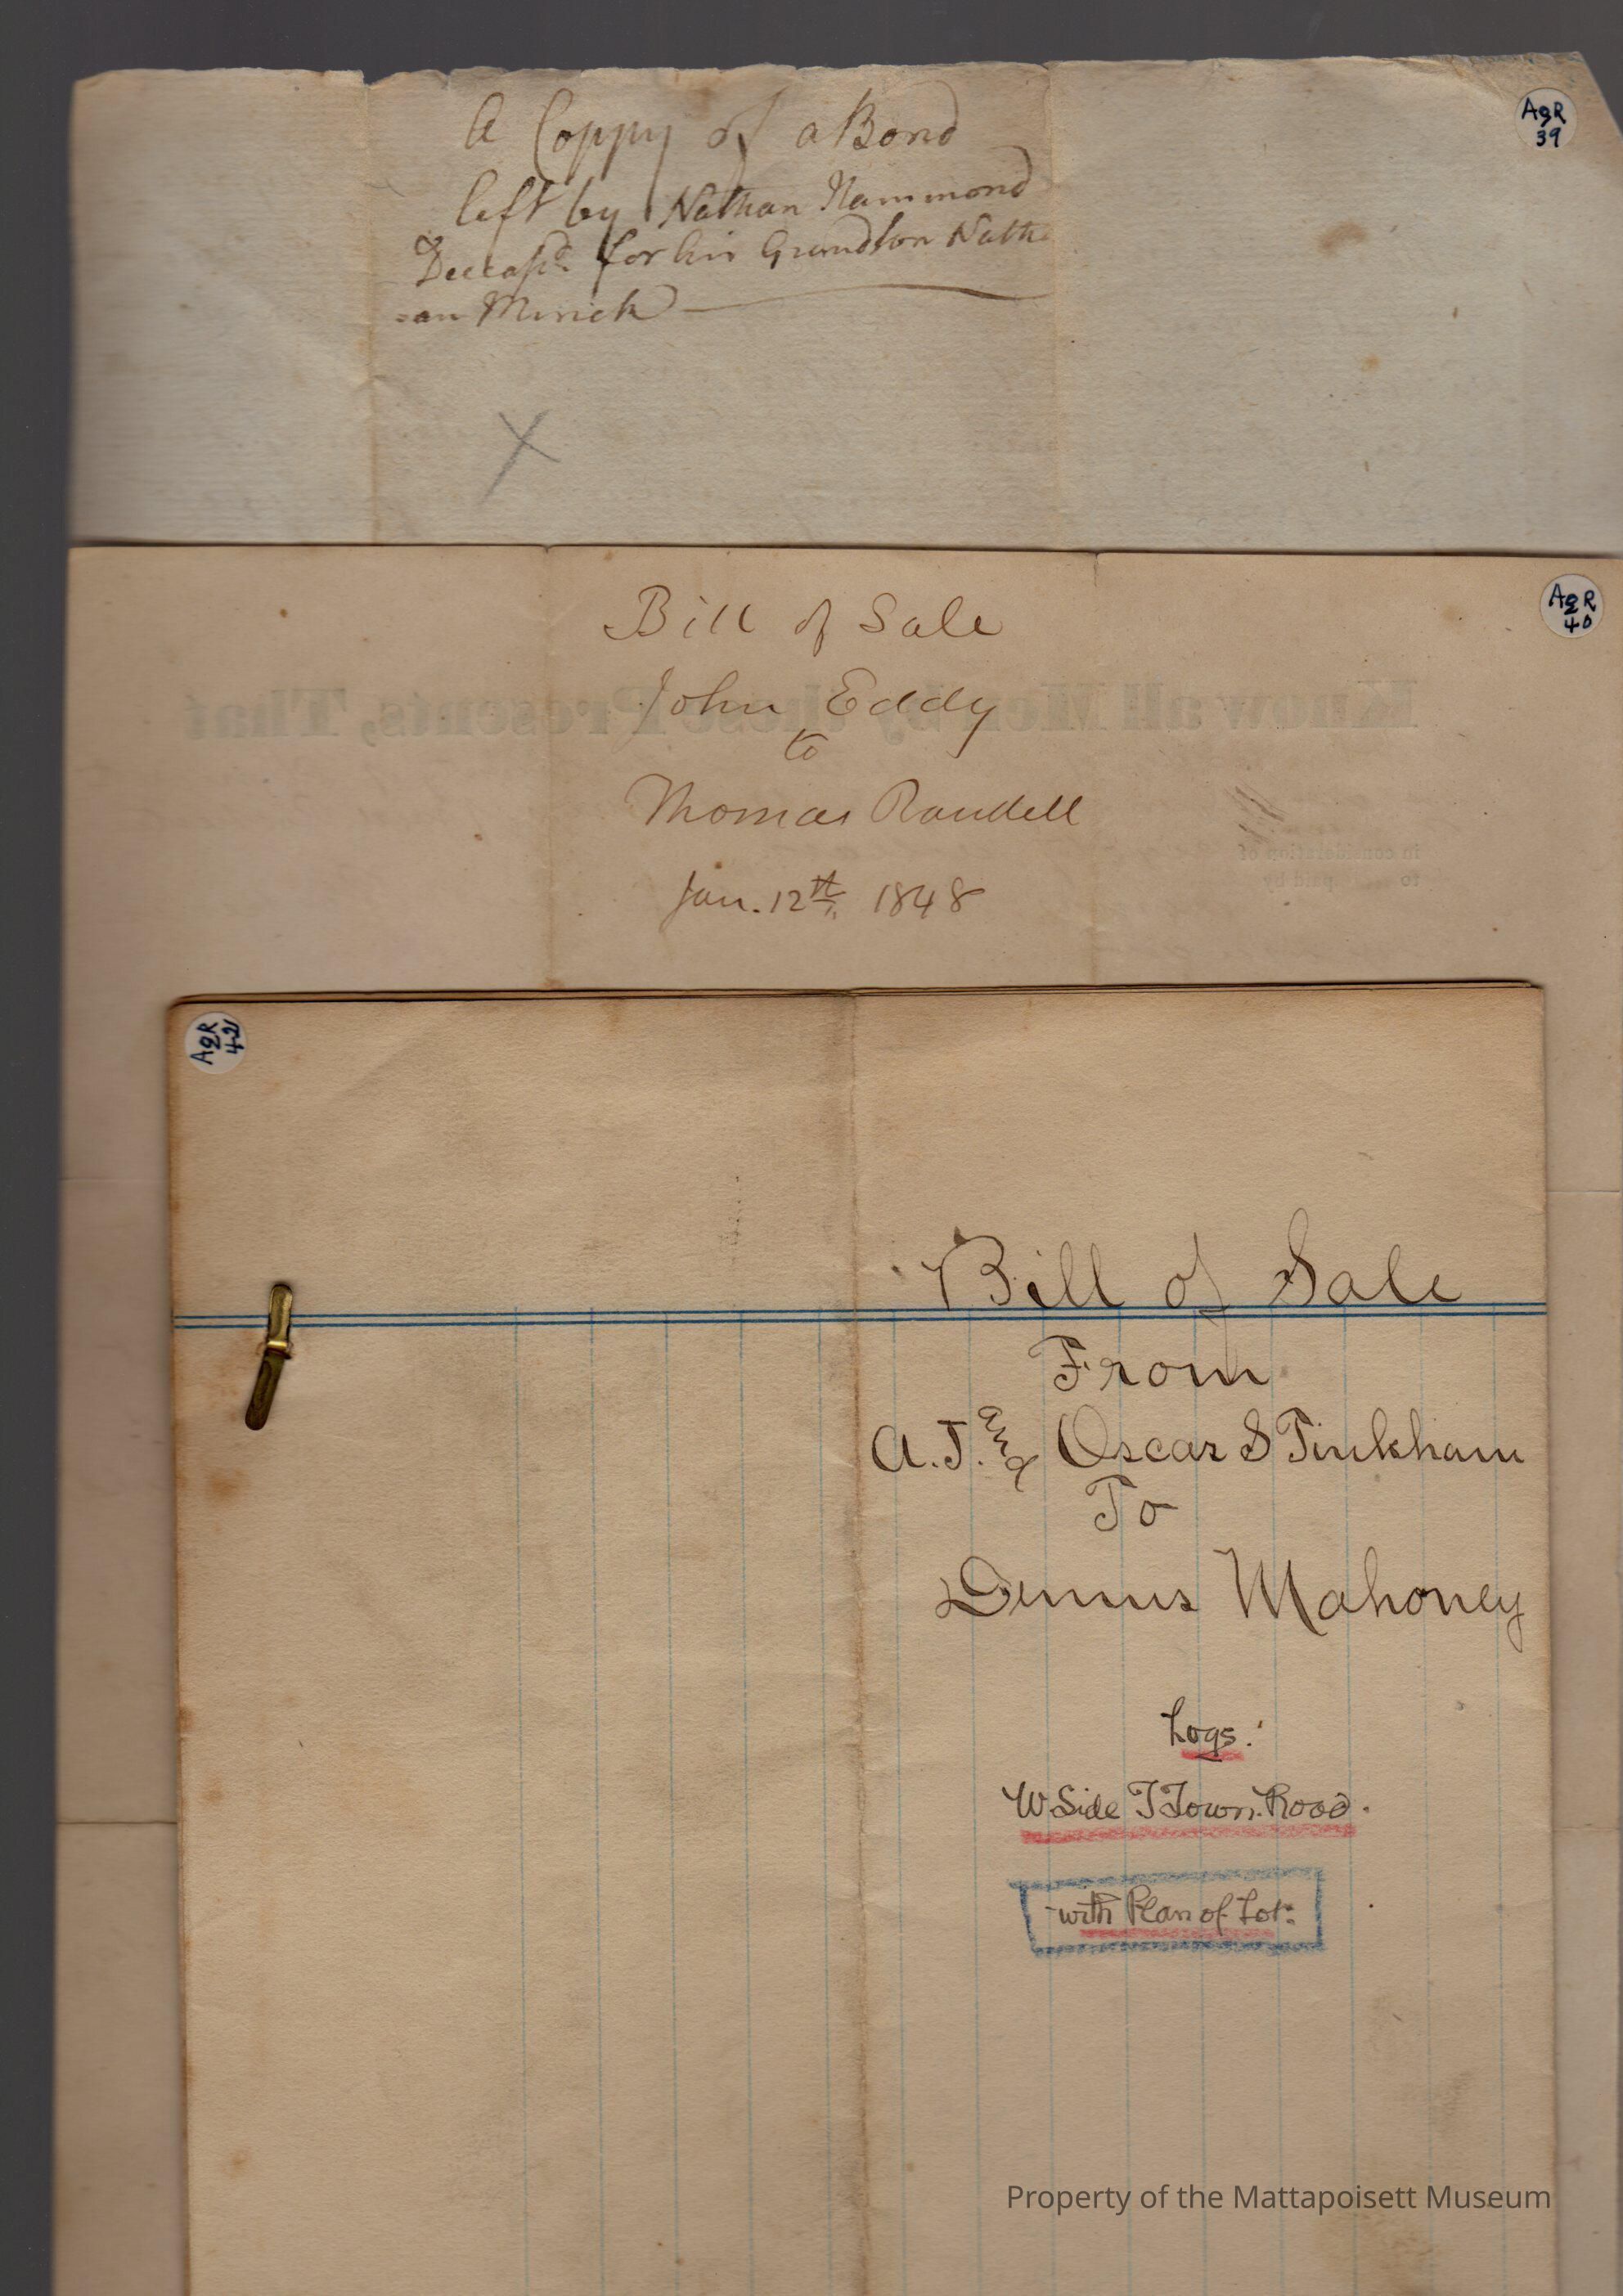 A Coppy of a Bond
left by Nathan Hammond
Deceasd. for his Grandson Nath
=an Mirick
AgR
39
X
AgR
40
Bill of Sale
John Eddy
to
Thomas Randell
Jan. 12th, 1848
Know all Men by these Presents, That
in consideration of
to paid by
AgR
42
Bill of Sale
From
A.T. and Oscar S Tinkham
To
Dennis Mahoney
Logs.
W Side T Town. Road.
with Plan of Lot.
Property of the Mattapoisett Museum